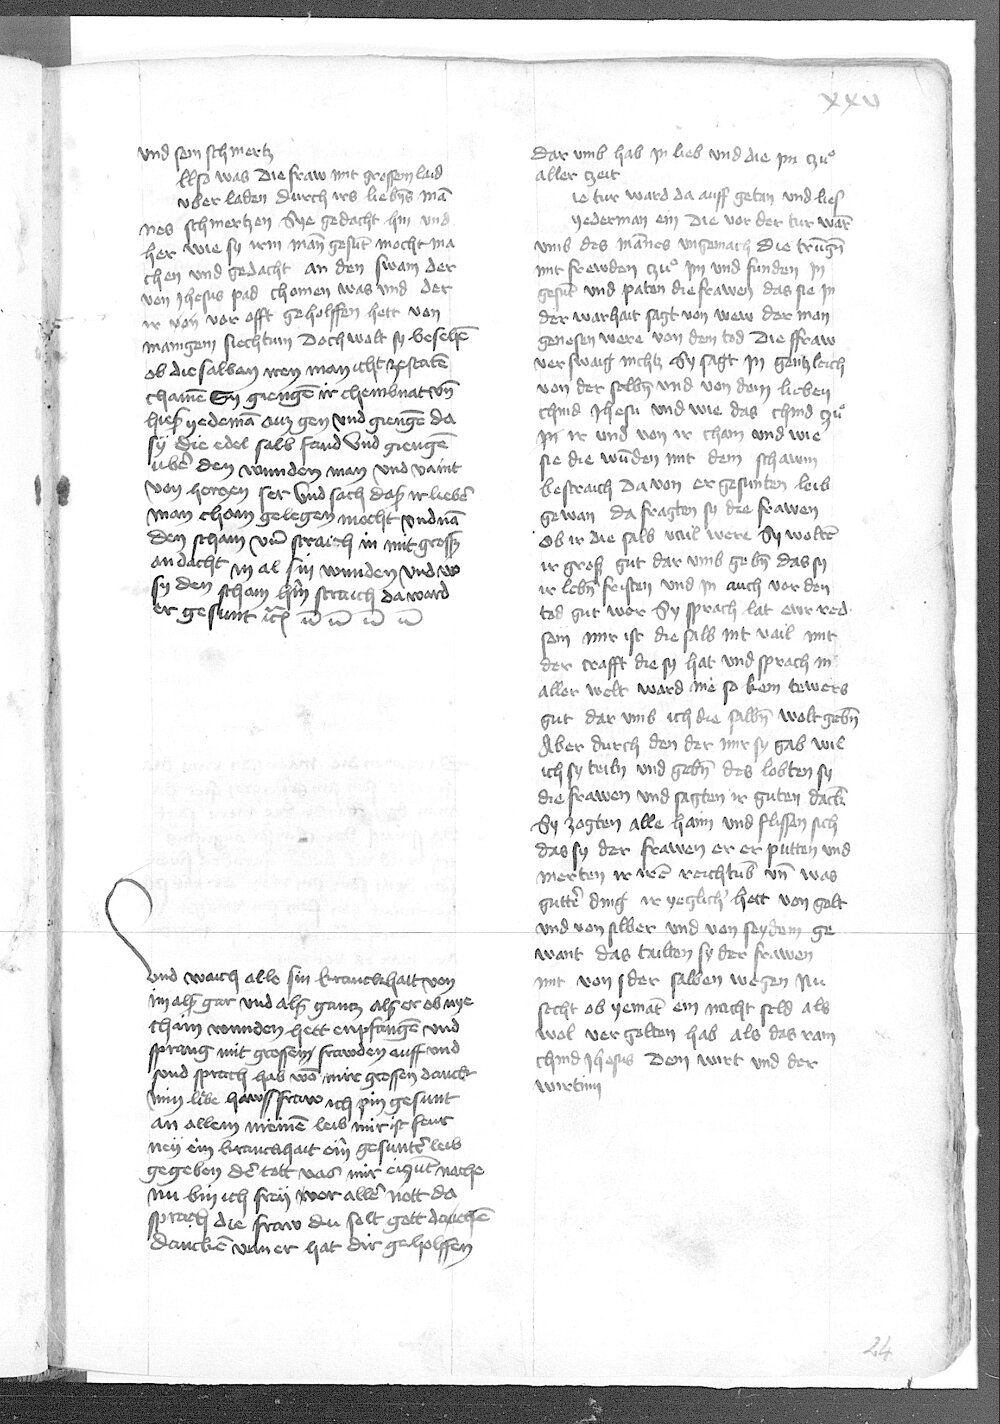 xxv
vnd sein schmertz
llso was die fraw mit grossem laid
vber laden durch irs liebñs mā
nes schmertzen Sye gedacht hin und
her wie sy irm man gesūt mocht ma
chen vnd gedacht an den swam der
von Jhesus pad chomen was vnd der
ir von vor offt geholffen hett von
manigem siechtum Doch wolt sy besehē
ob die salben
chamē Sy giengē ir chembnat vn̄
hieß yedermā auz gen vnd giengē da
sy die edel salb fand vnd giengē
uber den wunden man vnd vaint
von herczen ser vnd sach daß ir lieber
man chom gelegen mocht vnd nā
den scham vn̄ straich in mit groß
andacht in al sin wunden vnd wo
sy den scham hin straich da ward
er gesunt
vnd waich alle sin kranckhait von
im alß gar vnd alß gantz alß er ob nye
chain wunden hett enpfangē vnd
sprang mit grosem frawden auff vnd
vnd sprach hab vō mir grossen danck
min liebe hawssfraw ich pin gesunt
an allem meinē leib mir ist fur
neÿ ein kranckhait ein gesunter leib
gegeben der tott vas mir nache
nu bin ich freÿ vor aller nott do
sprach die fraw du solt gott danckē
danckē van er hat dir geholffen
dar vmb hab in lieb vnd die in czuͦ
aller czeit
ie tur ward da auff getan vnd lieſ
yederman ein Die vor der tur warn
vmb des mannes vngemach Die trūgn̄
mit frewden czuͦ im vnd funden in
gesūt vnd paten die frawen das sie in
der warhait sagt von wew der man
genesen were von dem tod Die ffraw
verswaig nichtz Sy sagt in gentzleich
von der selbn̄ vnd von dem lieben
chind Jhesu vnd wie das chind czuͦ
in ir vnd von ir cham vnd wie
sie die wūden mit dem schawm
bestraich Da von er gesunten leib
gewan da fragten sy die frawen
Ob ir die salb vail were Sy woltē
ir groß gut dar vmb gebn̄ das sy
ir lebn̄ fristen vnd in auch vor dem
tod gut wer Sy sprach lat ewr red
sein mir ist die salb nit vail mit
der crafft die sy hat vnd sprach in
aller welt ward nie so kein tewers
gut dar vmb ich die salbn̄ wolt gebn̄
Aber durch den der mir sy gab wil
ich sy teiln vnd gebn̄ des lobten sy
die frawen vnd sagten ir guten danck
Sy zogten alle haim vnd flissen sich
das sy der frawen er er putten vnd
merten ir irē reichtūb vn̄ was
gutter ding ir yeglich hett von golt
vnd von silber vnd von seydem ge
want das tailten sy der frawen
mit von der salben wegen Nu
secht ob yemāt ein nacht seld als
wol vergolten hab als das rain
chind Jhesus Dem wirt vnd der
wirtinn
24